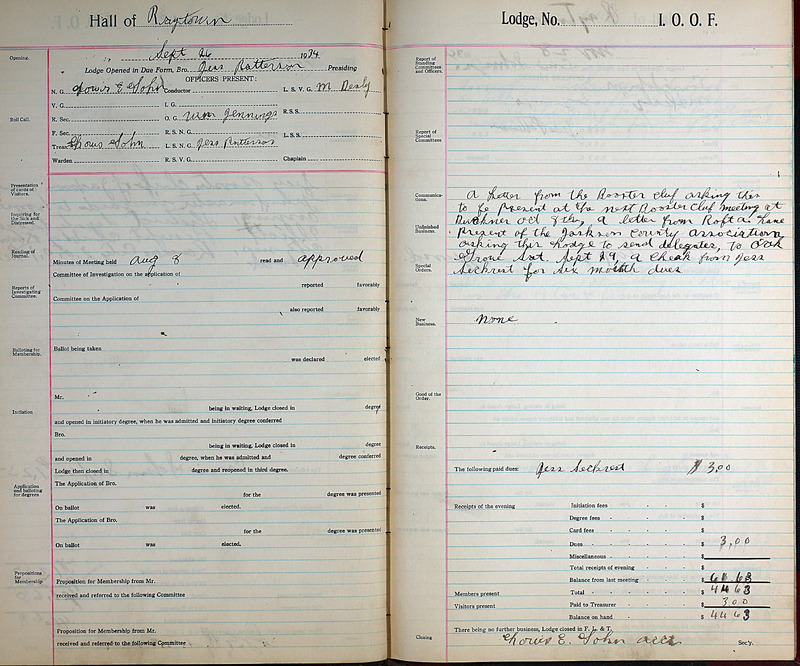 Hall of Raytown
Sept 26 1934
Opening.
Lodge Opened in Due Form, Bro. Jess Patterson Presiding
OFFICERS PRESENT:
N. G. Conductor L. S. V. G. M
V. G. I. G. R. S. S.
Roll Call.
R. Sec. O. G. Wm Jennings
F. Sec. R. S. N. G. L. S. S.
Treas. John L. S. N. G. Jess Patterson
Warden R. S. V. G. Chaplain
Presentation of cards of Visitors.
Inquiring for the Sick and Distressed.
Reading of Journal.
Minutes of Meeting held Aug 8 read and approved
Committee of Investigation on the application of
reported favorably
Reports of Investigating Committee.
Committee on the Application of
also reported favorably
Balloting for Membership.
Ballot being taken
was declared elected
Mr.
Initiation
being in waiting, Lodge closed in degree
and opened in initiatory degree, when he was admitted and initiatory degree conferred
Bro.
being in waiting, Lodge closed in degree
and opened in degree, when he was admitted and degree conferred
Lodge then closed in degree and reopened in third degree.
Application and balloting for degrees
The Application of Bro.
for the degree was presented
On ballot was elected.
The Application of Bro.
for the degree was presented
On ballot was elected.
Propositions for Membership
Proposition for Membership from Mr.
received and referred to the following Committee
Proposition for Membership from Mr.
received and referred to the following Committee
Lodge, No. I. O. O. F.
Report of Standing Committees and Officers.
Report of Special Committees
Communications.
A letter from the Booster Club asking this
to be present at the next Booster Club meeting at
Buckner Oct 8th, a letter from
Unfinished Business.
Present of the Jackson County association
asking this Lodge to send delegates, to Oak
Special Orders.
Grove Sat. Sept 29, a Cheak from Jess
Sechrest for six month dues
New Business.
None
Good of the Order.
Receipts.
The following paid dues: Jess Sechrest $ 3,00
Receipts of the evening Initiation fees $
Degree fees $
Card fees $
Dues $ 3,00
Miscellaneous $
Total receipts of evening $
Balance from last meeting $
Members present Total $ 44 63
Visitors present Paid to Treasurer $ 3 00
Balance on hand $ 44 63
There being no further business, Lodge closed in F. L. & T.
Closing
E. John Sec'y.